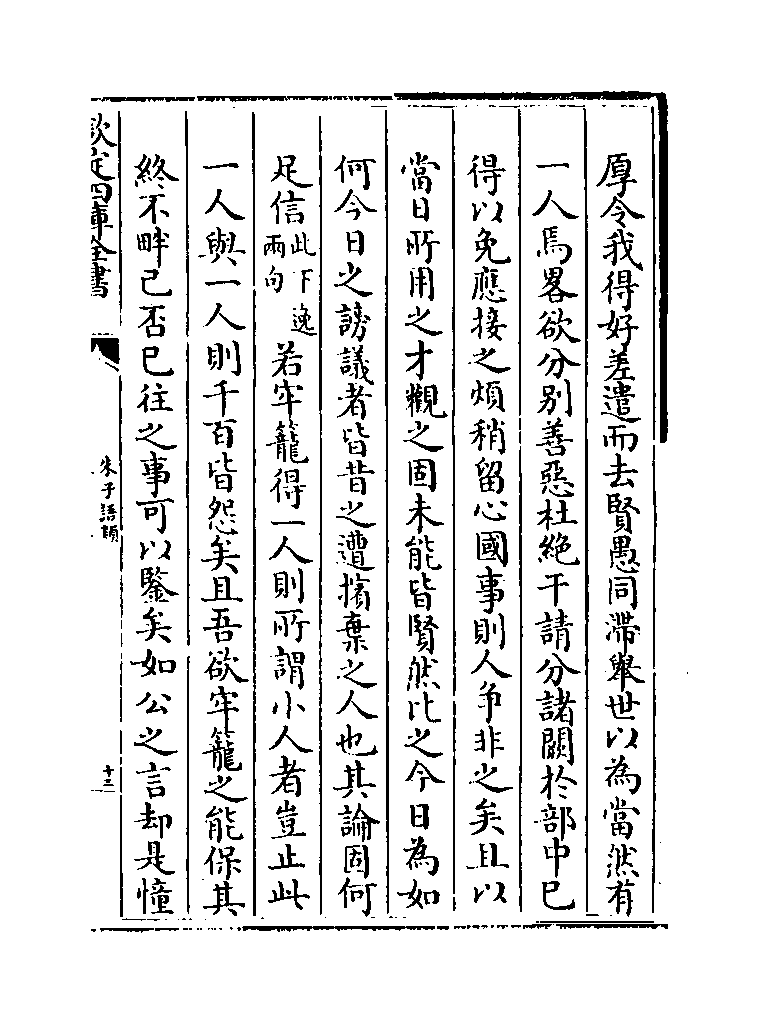 厚令我得好差遣而去賢愚同滯舉世以為當然有
一人焉畧欲分别善惡杜絶干請分諸闕於部中已
得以免應接之煩稍留心國事則人爭非之矣且以
當日所用之才觀之固未能皆賢然比之今日為如
何今日之謗議者皆昔之遭擯棄之人也其論固何
足信此下逸兩句若牢籠得一人則所謂小人者豈止此
一人與一人則千百皆怨矣且吾欲牢籠之能保其
終不畔已否已往之事可以鑒矣如公之言却是憧
欽定四庫全書
朱子語類
十三